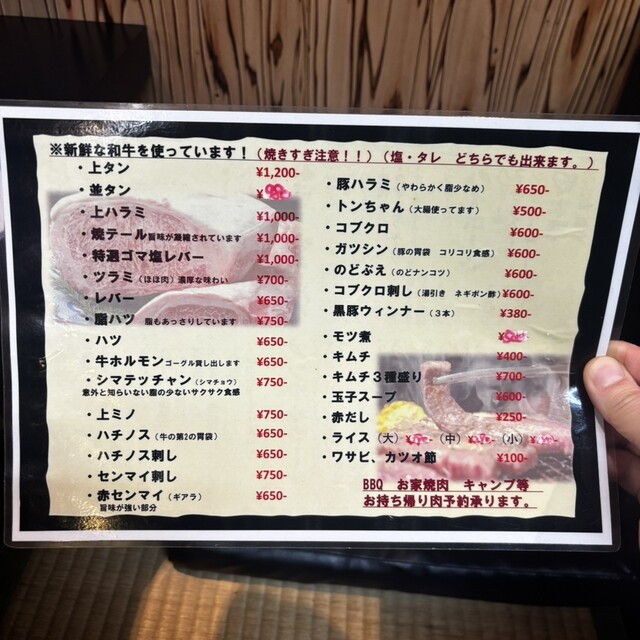 ※新鮮な和牛を使っています！（焼きすぎ注意！！）（塩・タレ どちらでも出来ます。）
・上タン ¥1,200-
・並タン ¥
・上ハラミ ¥1,000-
・焼テール 旨味が凝縮されています ¥1,000-
・特選ゴマ塩レバー ¥1,000-
・ツラミ（ほほ肉）濃厚な味わい ¥700-
・レバー ¥650-
・脂ハツ 脂もあっさりしています ¥750-
・ハツ ¥650-
・牛ホルモン ゴーグル貸し出します ¥650-
・シマテッチャン（シマチョウ） ¥750-
意外と知らない脂の少ないサクサク食感
・上ミノ ¥750-
・ハチノス（牛の第2の胃袋） ¥650-
・ハチノス刺し ¥650-
・センマイ刺し ¥750-
・赤センマイ（ギアラ） ¥650-
旨味が強い部分
・豚ハラミ（やわらかく脂少なめ） ¥650-
・トンちゃん（大腸使ってます） ¥500-
・コブクロ ¥600-
・ガツシン（豚の胃袋 コリコリ食感） ¥600-
・のどぶえ（のどナンコツ） ¥600-
・コブクロ刺し（湯引き ネギポン酢）¥600-
・黒豚ウィンナー（３本） ¥380-
・モツ煮 ¥
・キムチ ¥400-
・キムチ３種盛り ¥700-
・玉子スープ ¥600-
・赤だし ¥250-
・ライス（大）¥ （中）¥ （小）¥
・ワサビ、カツオ節 ¥100-
BBQ お家焼肉 キャンプ等
お持ち帰り肉予約承ります。